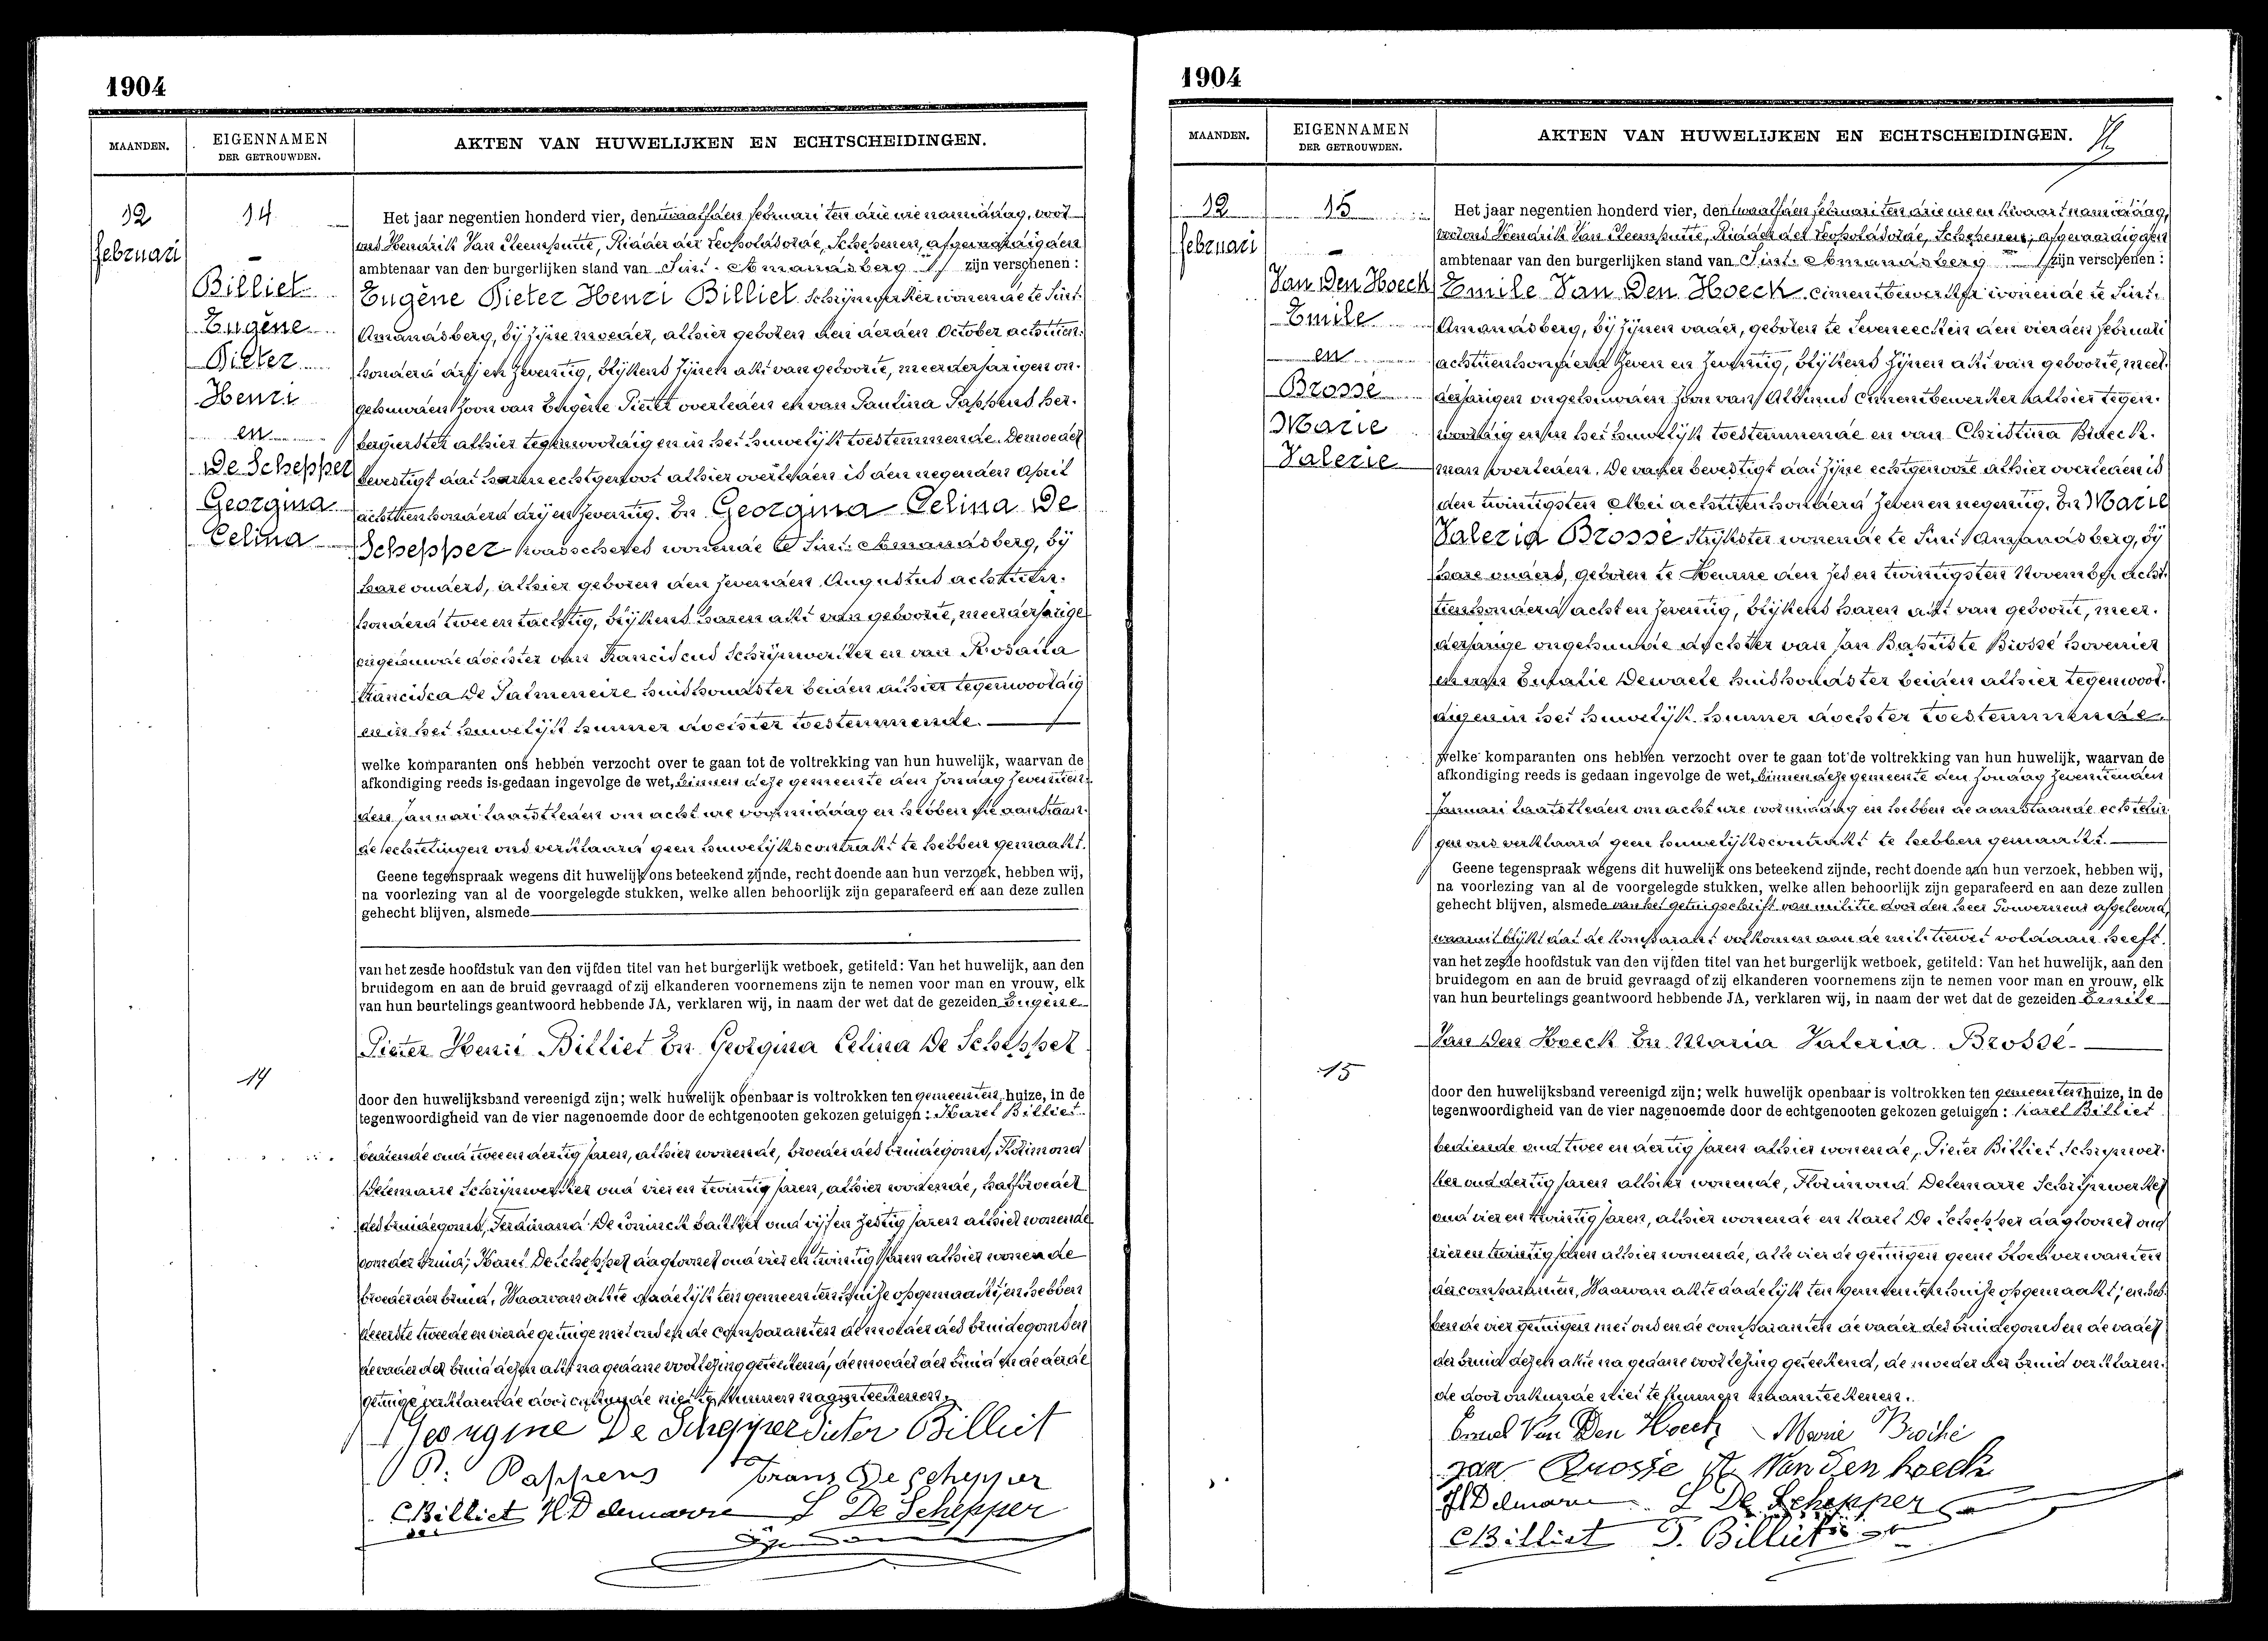 1904
MAANDEN.
EIGENNAMEN
DER GETROUWDEN.
AKTEN VAN HUWELIJKEN EN ECHTSCHEIDINGEN.
12
februari
14
Billiet
Eugène
Pieter
Henri
en
De Schepper
Georgina
Celina
Het jaar negentien honderd vier, den twaalfden februari ten drie ure namiddag, voor
ons Hendrik Van Cleemputte, Ridder der Leopoldsorde, Schepenen, afgevaardigden
ambtenaar van den burgerlijken stand van Sint-Amandsberg zijn verschenen:
Eugène Pieter Henri Billiet Schrijnwerker wonende te Sint-
Amandsberg, bij zijne moeder, alhier geboren den derden October achttien-
honderd drij en zeventig, blijkens zijnen akt van geboorte, meerderjarigen on-
gehuwden zoon van Eugène Pieter overleden en van Paulina Pappens her-
bergierster alhier tegenwoordig en in het huwelijk toestemmende. De moeder
bevestigt dat haren echtgenoot alhier overleden is den negenden April
achttienhonderd drij en zeventig. En Georgina Celina De
Schepper wonende te Sint-Amandsberg, bij
hare ouders, alhier geboren den zevenden Augustus achttien-
honderd twee en tachtig, blijkens haren akt van geboorte, meerderjarige
ongehuwde dochter van Franciscus Schrijnwerker en van Rosalia
Francisca De Palmeneire huishoudster beiden alhier tegenwoordig
en in het huwelijk hunner dochter toestemmende.
welke komparanten ons hebben verzocht over te gaan tot de voltrekking van hun huwelijk, waarvan de
afkondiging reeds is gedaan ingevolge de wet, binnen deze gemeente den zondag zeventien-
den Januari laatstleden om acht ure voormiddag en hebben de aanstaan-
de echtelingen ons verklaard geen huwelijkscontrakt te hebben gemaakt.
Geene tegenspraak wegens dit huwelijk ons beteekend zijnde, recht doende aan hun verzoek, hebben wij,
na voorlezing van al de voorgelegde stukken, welke allen behoorlijk zijn geparafeerd en aan deze zullen
gehecht blijven, alsmede
van het zesde hoofdstuk van den vijfden titel van het burgerlijk wetboek, getiteld: Van het huwelijk, aan den
bruidegom en aan de bruid gevraagd of zij elkanderen voornemens zijn te nemen voor man en vrouw, elk
van hun beurtelings geantwoord hebbende JA, verklaren wij, in naam der wet dat de gezeiden Eugène
Pieter Henri Billiet En Georgina Celina De Schepper
14
door den huwelijksband vereenigd zijn; welk huwelijk openbaar is voltrokken ten gemeenten huize, in de
tegenwoordigheid van de vier nagenoemde door de echtgenooten gekozen getuigen: Karel Billiet
bediende oud twee en dertig jaren, alhier wonende, broeder des bruidegoms, Florimond
Delemarre Schrijnwerker oud vier en twintig jaren, alhier wonende, halfbroeder
des bruidegoms, Ferdinand De Coninck bakker oud vijf en zestig jaren alhier wonende
oom der bruid; Karel De Schepper dagloonet oud vier en twintig jaren alhier wonende
broeder der bruid. Waarvan aktie dadelijk ten gemeentenhuize opgemaakt; en hebben
de eerste tweede en vierde getuige met ons en de comparanten de moeder des bruidegoms en
de vader der bruid dezen akt na gedane voorlezing geteekend, de moeder der bruid en de derde
getuige verklarende door onkunde niet te kunnen naamteekenen.
Georgine De Schepper Pieter Billiet
P: Pappens Frans De Schepper
CBilliet H Delemarre L De Schepper
1904
MAANDEN.
EIGENNAMEN
DER GETROUWDEN.
AKTEN VAN HUWELIJKEN EN ECHTSCHEIDINGEN.
12
februari
15
Van Den Hoeck
Emile
en
Brossé
Marie
Valerie
Het jaar negentien honderd vier, den twaalfden februari ten drie ure en kwaart namiddag,
voor ons Hendrik Van Cleemputte, Ridder der Leopoldsorde, Schepenen, afgevaardigden
ambtenaar van den burgerlijken stand van Sint-Amandsberg zijn verschenen:
Emile Van Den Hoeck cimentbewerker wonende te Sint-
Amandsberg, bij zijnen vader, geboren te Seveneecken den vierden februari
achttienhonderd zeven en zeventig, blijkens zijnen akt van geboorte, meer-
derjarigen ongehuwden zoon van Albinus cimentbewerker alhier tegen-
woordig en in het huwelijk toestemmende en van Christina Braeck-
man overleden. De vader bevestigt dat zijne echtgenoote alhier overleden is
den twintigsten Mei achttienhonderd zeven en negentig. En Marie
Valeria Brossé Strijkster wonende te Sint-Amandsberg, bij
hare ouders, geboren te Heusne den zes en twintigsten November acht-
tienhonderd acht en zeventig, blijkens haren akt van geboorte, meer-
derjarige ongehuwde dochter van Jan Baptiste Brossé hovenier
en van Eulalie Dewaele huishoudster beiden alhier tegenwoor-
dig en in het huwelijk hunner dochter toestemmende.
welke komparanten ons hebben verzocht over te gaan tot de voltrekking van hun huwelijk, waarvan de
afkondiging reeds is gedaan ingevolge de wet, binnen deze gemeente den zondag zeventienden
Januari laatstleden om acht ure voormiddag en hebben de aanstaande echtelin-
gen ons verklaard geen huwelijkscontrakt te hebben gemaakt.
Geene tegenspraak wegens dit huwelijk ons beteekend zijnde, recht doende aan hun verzoek, hebben wij,
na voorlezing van al de voorgelegde stukken, welke allen behoorlijk zijn geparafeerd en aan deze zullen
gehecht blijven, alsmede van het getuigschrift van militie door den heer Gouverneur afgeleverd,
waaruit blijkt dat de komparant volkomen aan de militiewet voldaan heeft.
van het zesde hoofdstuk van den vijfden titel van het burgerlijk wetboek, getiteld: Van het huwelijk, aan den
bruidegom en aan de bruid gevraagd of zij elkanderen voornemens zijn te nemen voor man en vrouw, elk
van hun beurtelings geantwoord hebbende JA, verklaren wij, in naam der wet dat de gezeiden Emile
Van Den Hoeck En Maria Valeria Brossé
15
door den huwelijksband vereenigd zijn; welk huwelijk openbaar is voltrokken ten gemeenten huize, in de
tegenwoordigheid van de vier nagenoemde door de echtgenooten gekozen getuigen: Karel Billiet
bediende oud twee en dertig jaren alhier wonende, Pieter Billiet Schrijnwer-
ker oud dertig jaren alhier wonende, Florimond Delemarre Schrijnwerker
oud vier en twintig jaren, alhier wonende en Karel De Schepper dagloonet oud
vier en twintig jaren alhier wonende, alle vier de getuigen geene bloedverwanten
der comparanten, Waarvan aktie dadelijk ten gemeentenhuize opgemaakt; en heb-
ben de vier getuigen met ons en de comparanten de vader des bruidegoms en de vader
der bruid dezen aktie na gedane voorlezing geteekend, de moeder der bruid verklaren-
de door onkunde niet te kunnen naamteekenen.
Emiel Van Den Hoeck Marie Broché
Jan Brosse A Van den hoeck
Delmarre L De Schepper
CBilliet P. Billiet